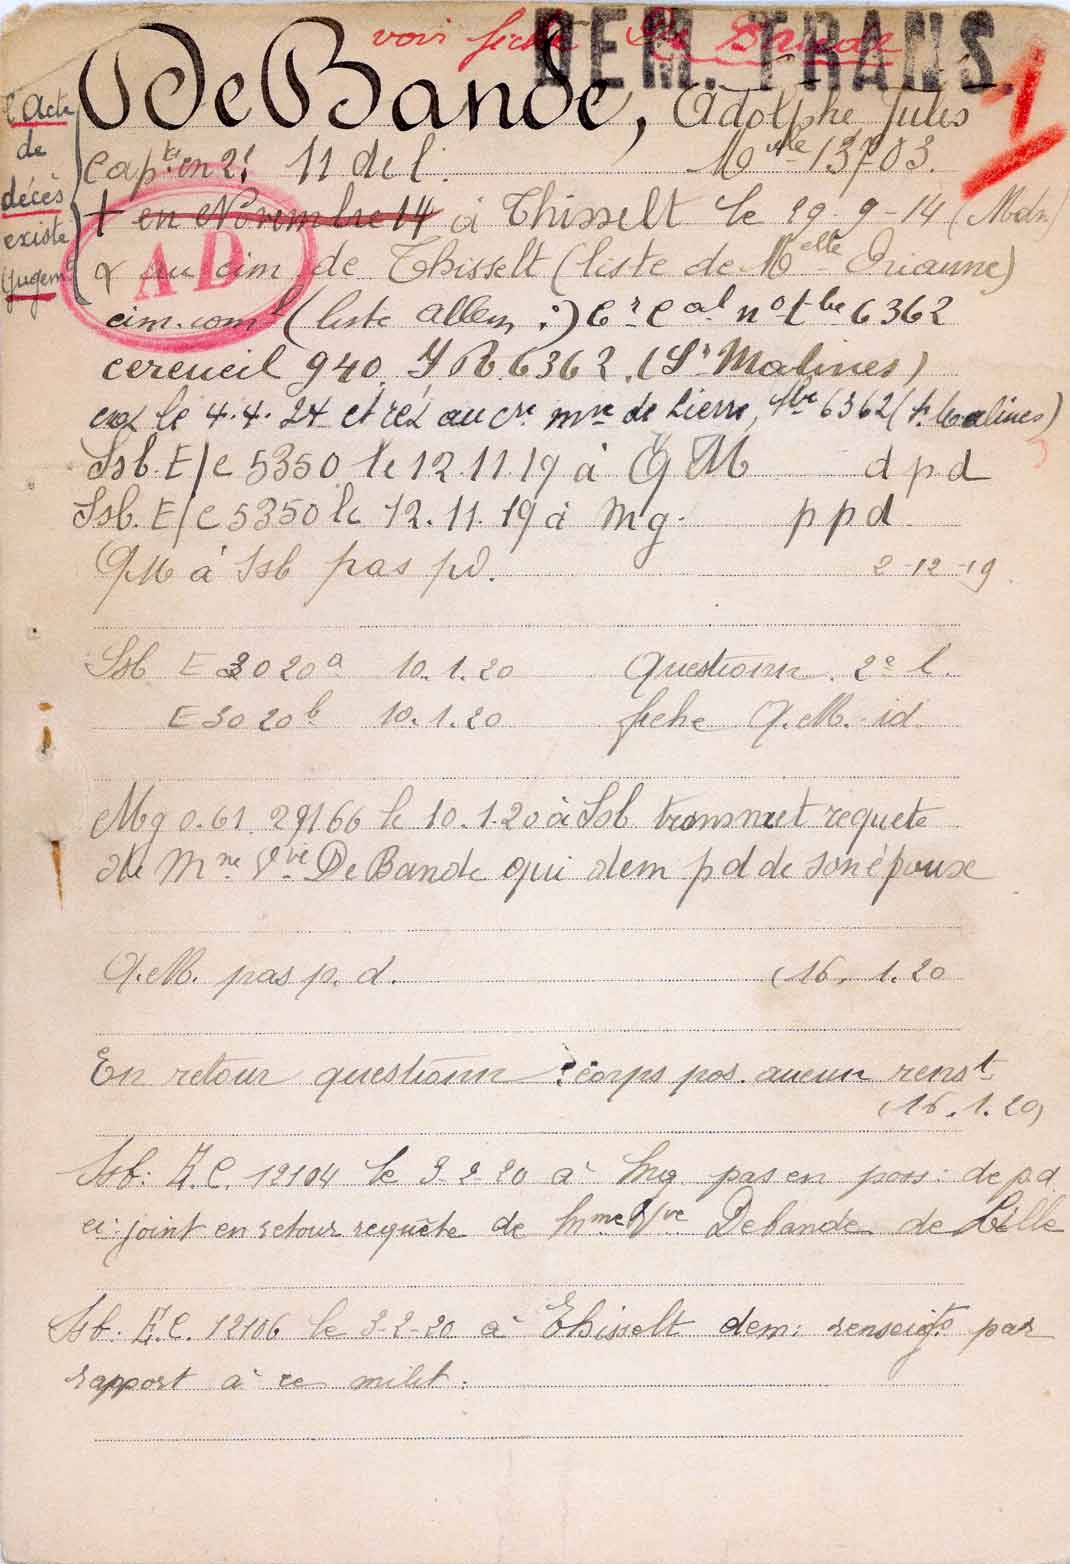 voir fiche De Bande
DEM. TRANS.
1
De Bande, Adolphe Jules
l'Acte
de
décès
existe
(jugemt
Capt. en 2d 11 de l. Mvlle 13703.
+ en Novembre 14 à Thisselt le 29-9-14 (Mdn)
& au cim de Thisselt (liste de Melle Orianne)
AD
cim. coml (liste allem :) Cr Cal no tbe 6362
cercueil 940. YR 6362. (Sr Malines)
ex le 4.4.24 et ré au Cre mre de Lierre, tbe 6362 (Malines)
Ssb. E/c 5350 le 12.11.19 à QM d p d
Ssb. E/c 5350 le 12.11.19 à Mg. p p d
QM à Ssb pas pd. 2-12-19
Ssb E 3020a 10.1.20 Questionn. 2e l.
E 3020b 10.1.20 fiche Q.M. id
Mg 0.61 29166 le 10.1.20 à Ssb transmet requete
de Mme Vve De Bande qui dem p d de son époux
Q.M. pas p. d. (16.1.20
En retour questionn : corps pos. aucun renst
(16.1.20)
Ssb. E.C. 12104 le 3-2-20 à Mg pas en poss: de p.d
ci-joint en retour requête de Mme Vve Debande de Lille
Ssb. E.C. 12106 le 3-2-20 à Thisselt dem: renseigts par
rapport à ce milit.